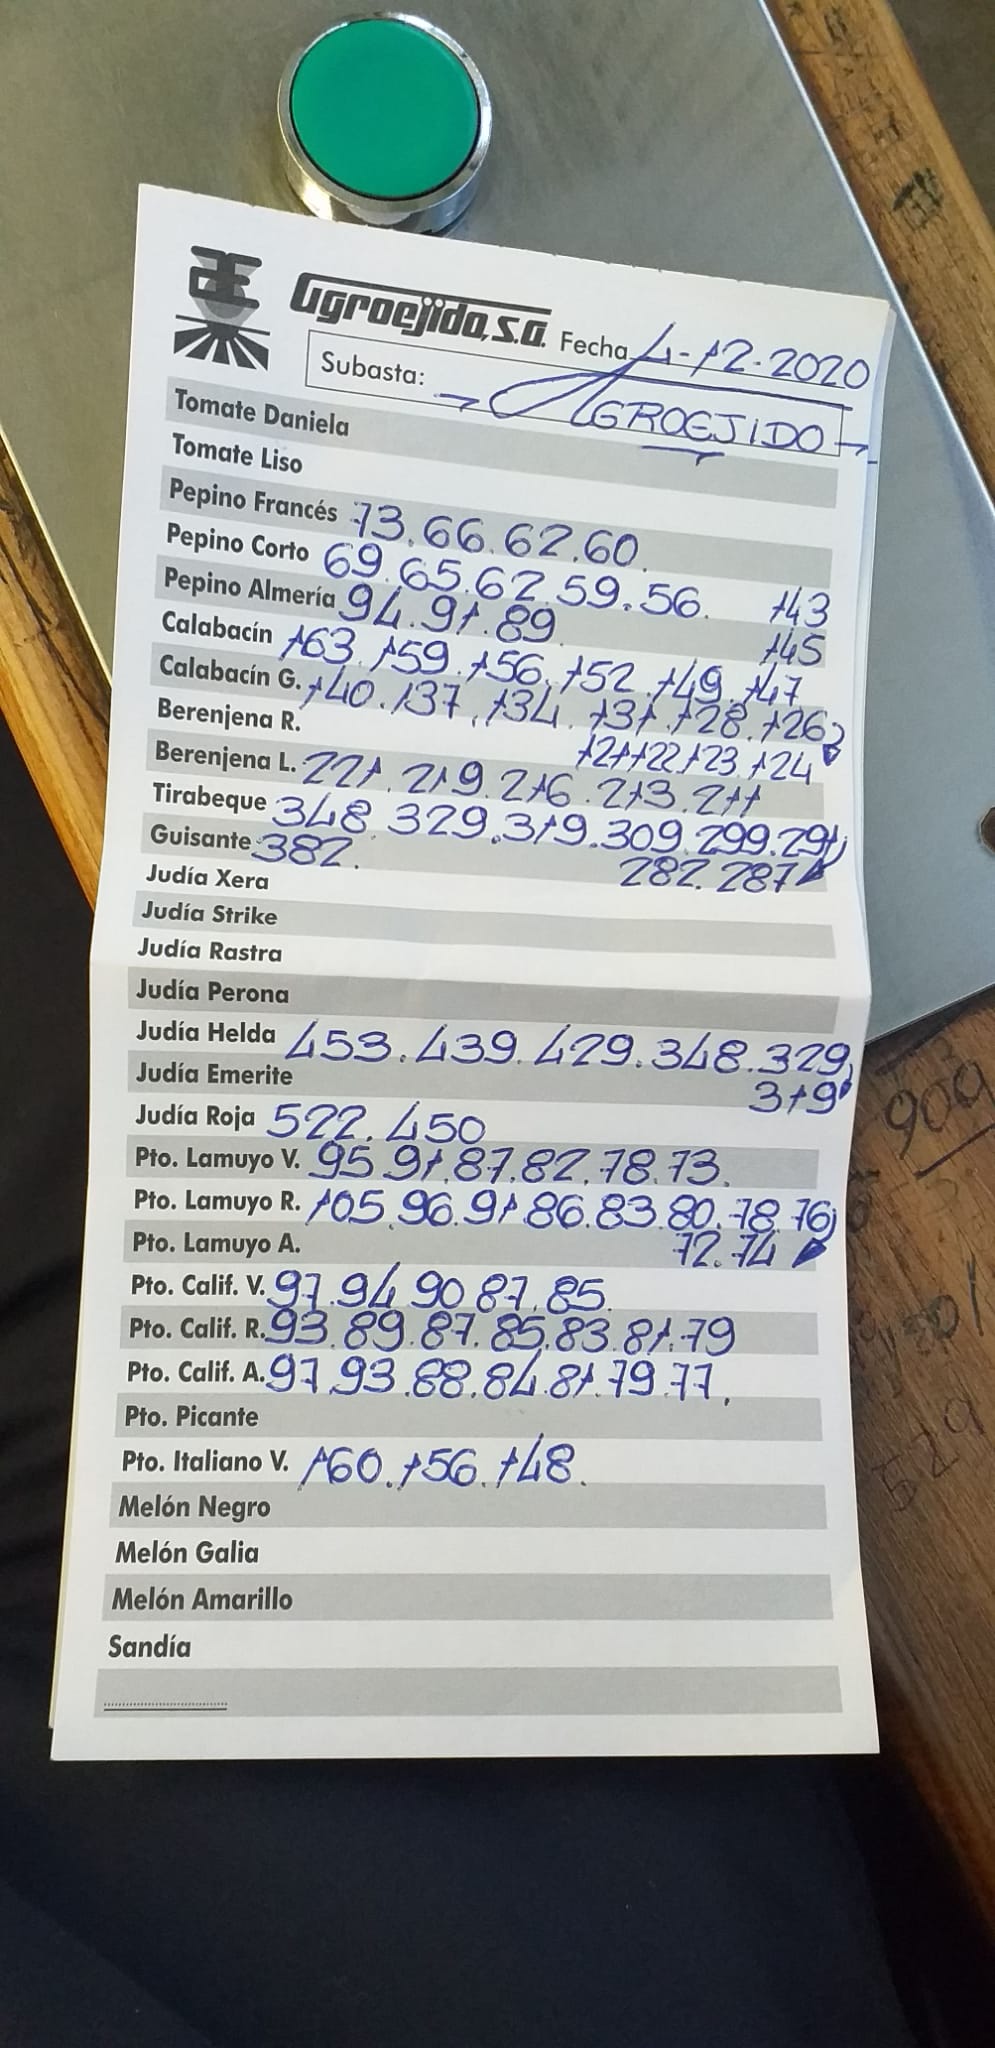 Agroejido, s.a. Fecha 4-12-2020
Subasta: → AGROEJIDO →
Tomate Daniela
Tomate Liso
Pepino Francés 73.66.62.60.
Pepino Corto 69.65.62.59.56. 143
Pepino Almería 94.91.89 145
Calabacín 163.159.156.152.149.147
Calabacín G. 140.137.134.131.128.126
Berenjena R. 121 122 123.124
Berenjena L. 221.219.216.213.211
Tirabeque 348.329.319.309.299.291
Guisante 382. 282.287
Judía Xera
Judía Strike
Judía Rastra
Judía Perona
Judía Helda 453.439.429.348.329
Judía Emerite 319
Judía Roja 522.450
Pto. Lamuyo V. 95.91.87.82.78.73.
Pto. Lamuyo R. 105.96.91.86.83.80.78.76
Pto. Lamuyo A. 72.74
Pto. Calif. V. 97.94.90.87.85.
Pto. Calif. R. 93.89.87.85.83.81.79
Pto. Calif. A. 97.93.88.84.81.79.77.
Pto. Picante
Pto. Italiano V. 160.156.148.
Melón Negro
Melón Galia
Melón Amarillo
Sandía
900
529